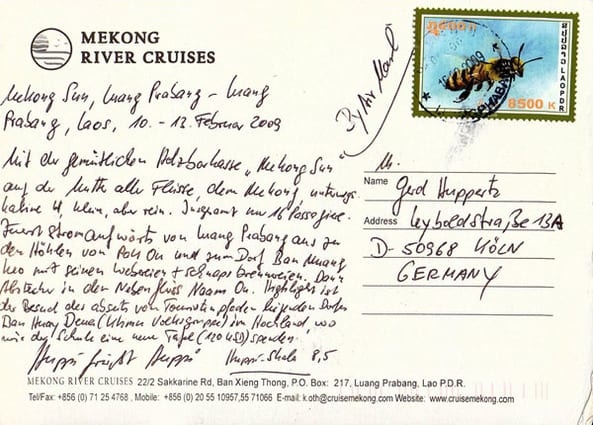 MEKONG
RIVER CRUISES
Mekong Sun, Luang Prabang – Luang
Prabang, Laos, 10. - 13. Februar 2009
By Air Mail
Mit der gemütlichen Holzbarkasse „Mekong Sun"
auf der Mutter aller Flüsse, dem Mekong, unterwegs.
Kabine 4, klein, aber rein. Insgesamt nur 16 Passagiere.
Zuerst stromaufwärts von Luang Prabang aus zu
den Höhlen von Pak Ou und zum Dorf Ban Muang
Keo mit seinen Webereien + Schnapsbrennereien. Dann
Abstecher in den Nebenfluss Naam Ou. Highlight ist
der Besuch des abseits von Touristenpfaden liegenden Dorfes
Ban Huay (Khmu Volksgruppe) im Hochland, wo
wir der Schule eine neue Tafel (120 USD) spenden.
Huppi grüßt Huppi Huppi-Skala 8,5
LAO P.D.R
8500 K
2009
Name Gerd Huppertz
Address Leyboldstraße 13A
D-50968 KÖLN
GERMANY
MEKONG RIVER CRUISES 22/2 Sakkarine Rd, Ban Xieng Thong, P.O. Box: 217, Luang Prabang, Lao P.D.R.
Tel/Fax: +856 (0) 71 25 4768 , Mobile: +856 (0) 20 55 10957,55 71066 E-mail: k.oth@cruisemekong.com Website: www.cruisemekong.com